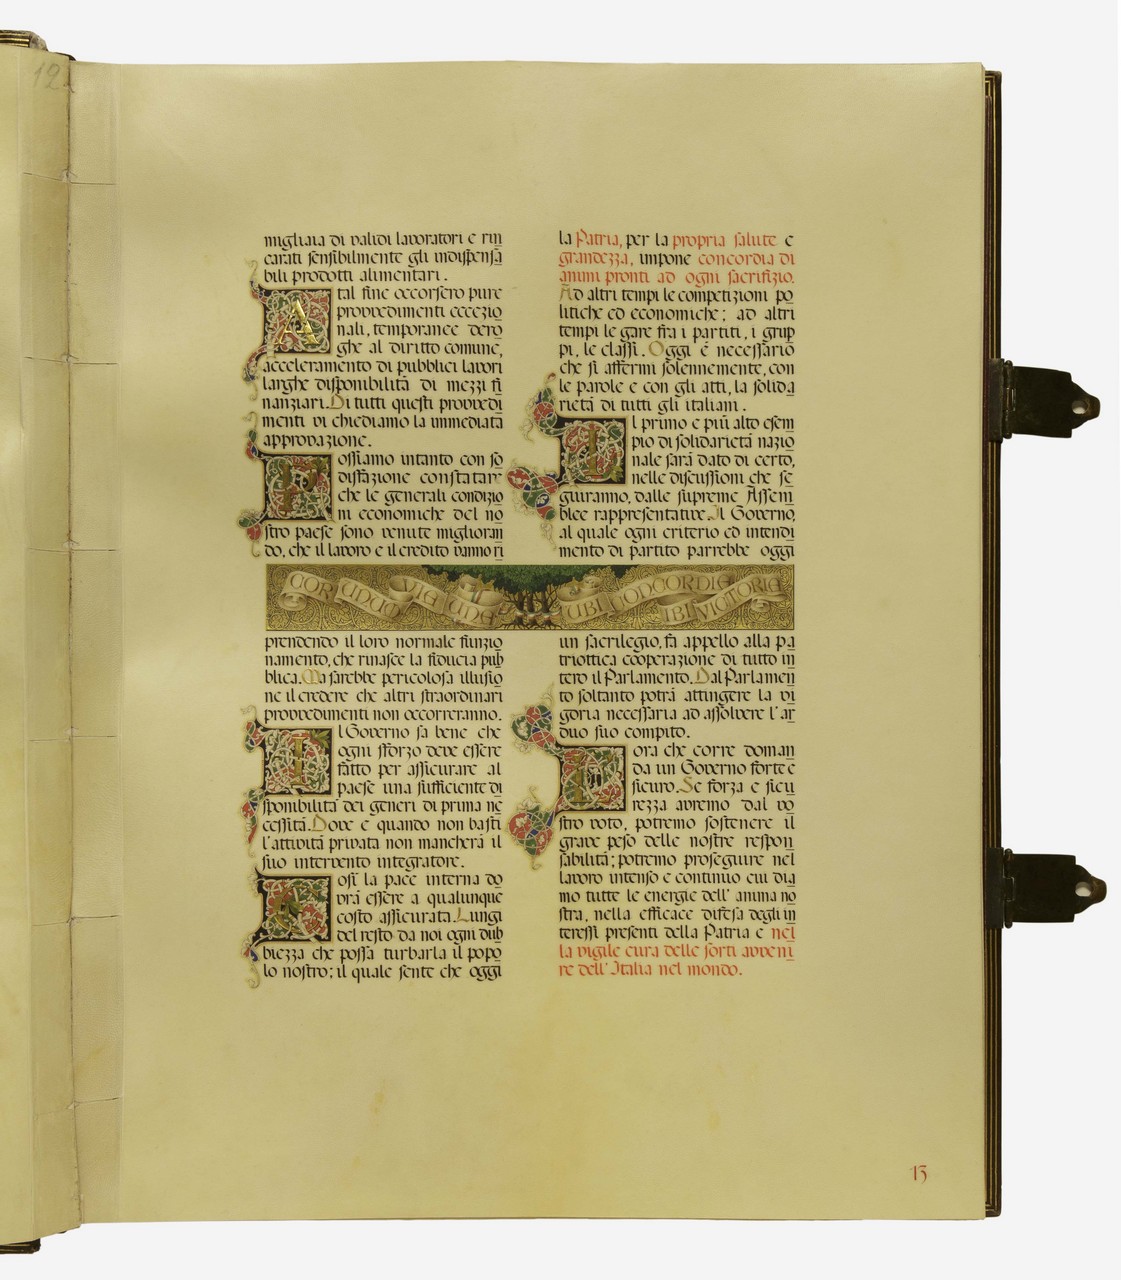 12
migliaia di validi lavoratori e rin
carati sensibilmente gli indispensa
bili prodotti alimentari.
A tal fine occorsero pure
provvedimenti eccezio
nali, temporanee dero
ghe al diritto comune,
acceleramento di pubblici lavori
larghe disponibilità di mezzi fi
nanziari. Di tutti questi provvedi
menti vi chiediamo la immediata
approvazione.
Possiamo intanto con so
disfazione constatare
che le generali condizio
ni economiche del no
stro paese sono venute miglioran
do, che il lavoro e il credito vanno ri
COR UNUM VIE UNE
prendendo il loro normale funzio
namento, che rinasce la fiducia pub
blica. Ma sarebbe pericolosa illusio
ne il credere che altri straordinari
provvedimenti non occorreranno.
Il Governo sa bene che
ogni sforzo deve essere
fatto per assicurare al
paese una sufficiente di
sponibilità dei generi di prima ne
cessità. Dove e quando non basti
l'attività privata non mancherà il
suo intervento integratore.
osì la pace interna do
vrà essere a qualunque
costo assicurata. Lungi
del resto da noi ogni dub
biezza che possa turbarla il popo
lo nostro; il quale sente che oggi
la Patria, per la propria salute e
grandezza, impone concordia di
animi pronti ad ogni sacrifizio.
Ad altri tempi le competizioni po
litiche ed economiche; ad altri
tempi le gare fra i partiti, i grup
pi, le classi. Oggi è necessario
che si affermi solennemente, con
le parole e con gli atti, la solida
rietà di tutti gli italiani.
Il primo e più alto esem
pio di solidarietà nazio
nale sarà dato di certo,
nelle discussioni che se
guiranno, dalle supreme Assem
blee rappresentative. Il Governo,
al quale ogni criterio ed intendi
mento di partito parrebbe oggi
UBI CONCORDIE IBI VICTORIE
un sacrilegio, fa appello alla pa
triottica cooperazione di tutto in
tero il Parlamento. Dal Parlamen
to soltanto potrà attingere la vi
goria necessaria ad assolvere l'ar
duo suo compito.
L'ora che corre doman
da un Governo forte e
sicuro. Se forza e sicu
rezza avremo dal vo
stro voto, potremo sostenere il
grave peso delle nostre respon
sabilità; potremo proseguire nel
lavoro intenso e continuo cui dia
mo tutte le energie dell' anima no
stra, nella efficace difesa degli in
teressi presenti della Patria e nel
la vigile cura delle sorti avveni
re dell' Italia nel mondo.
13